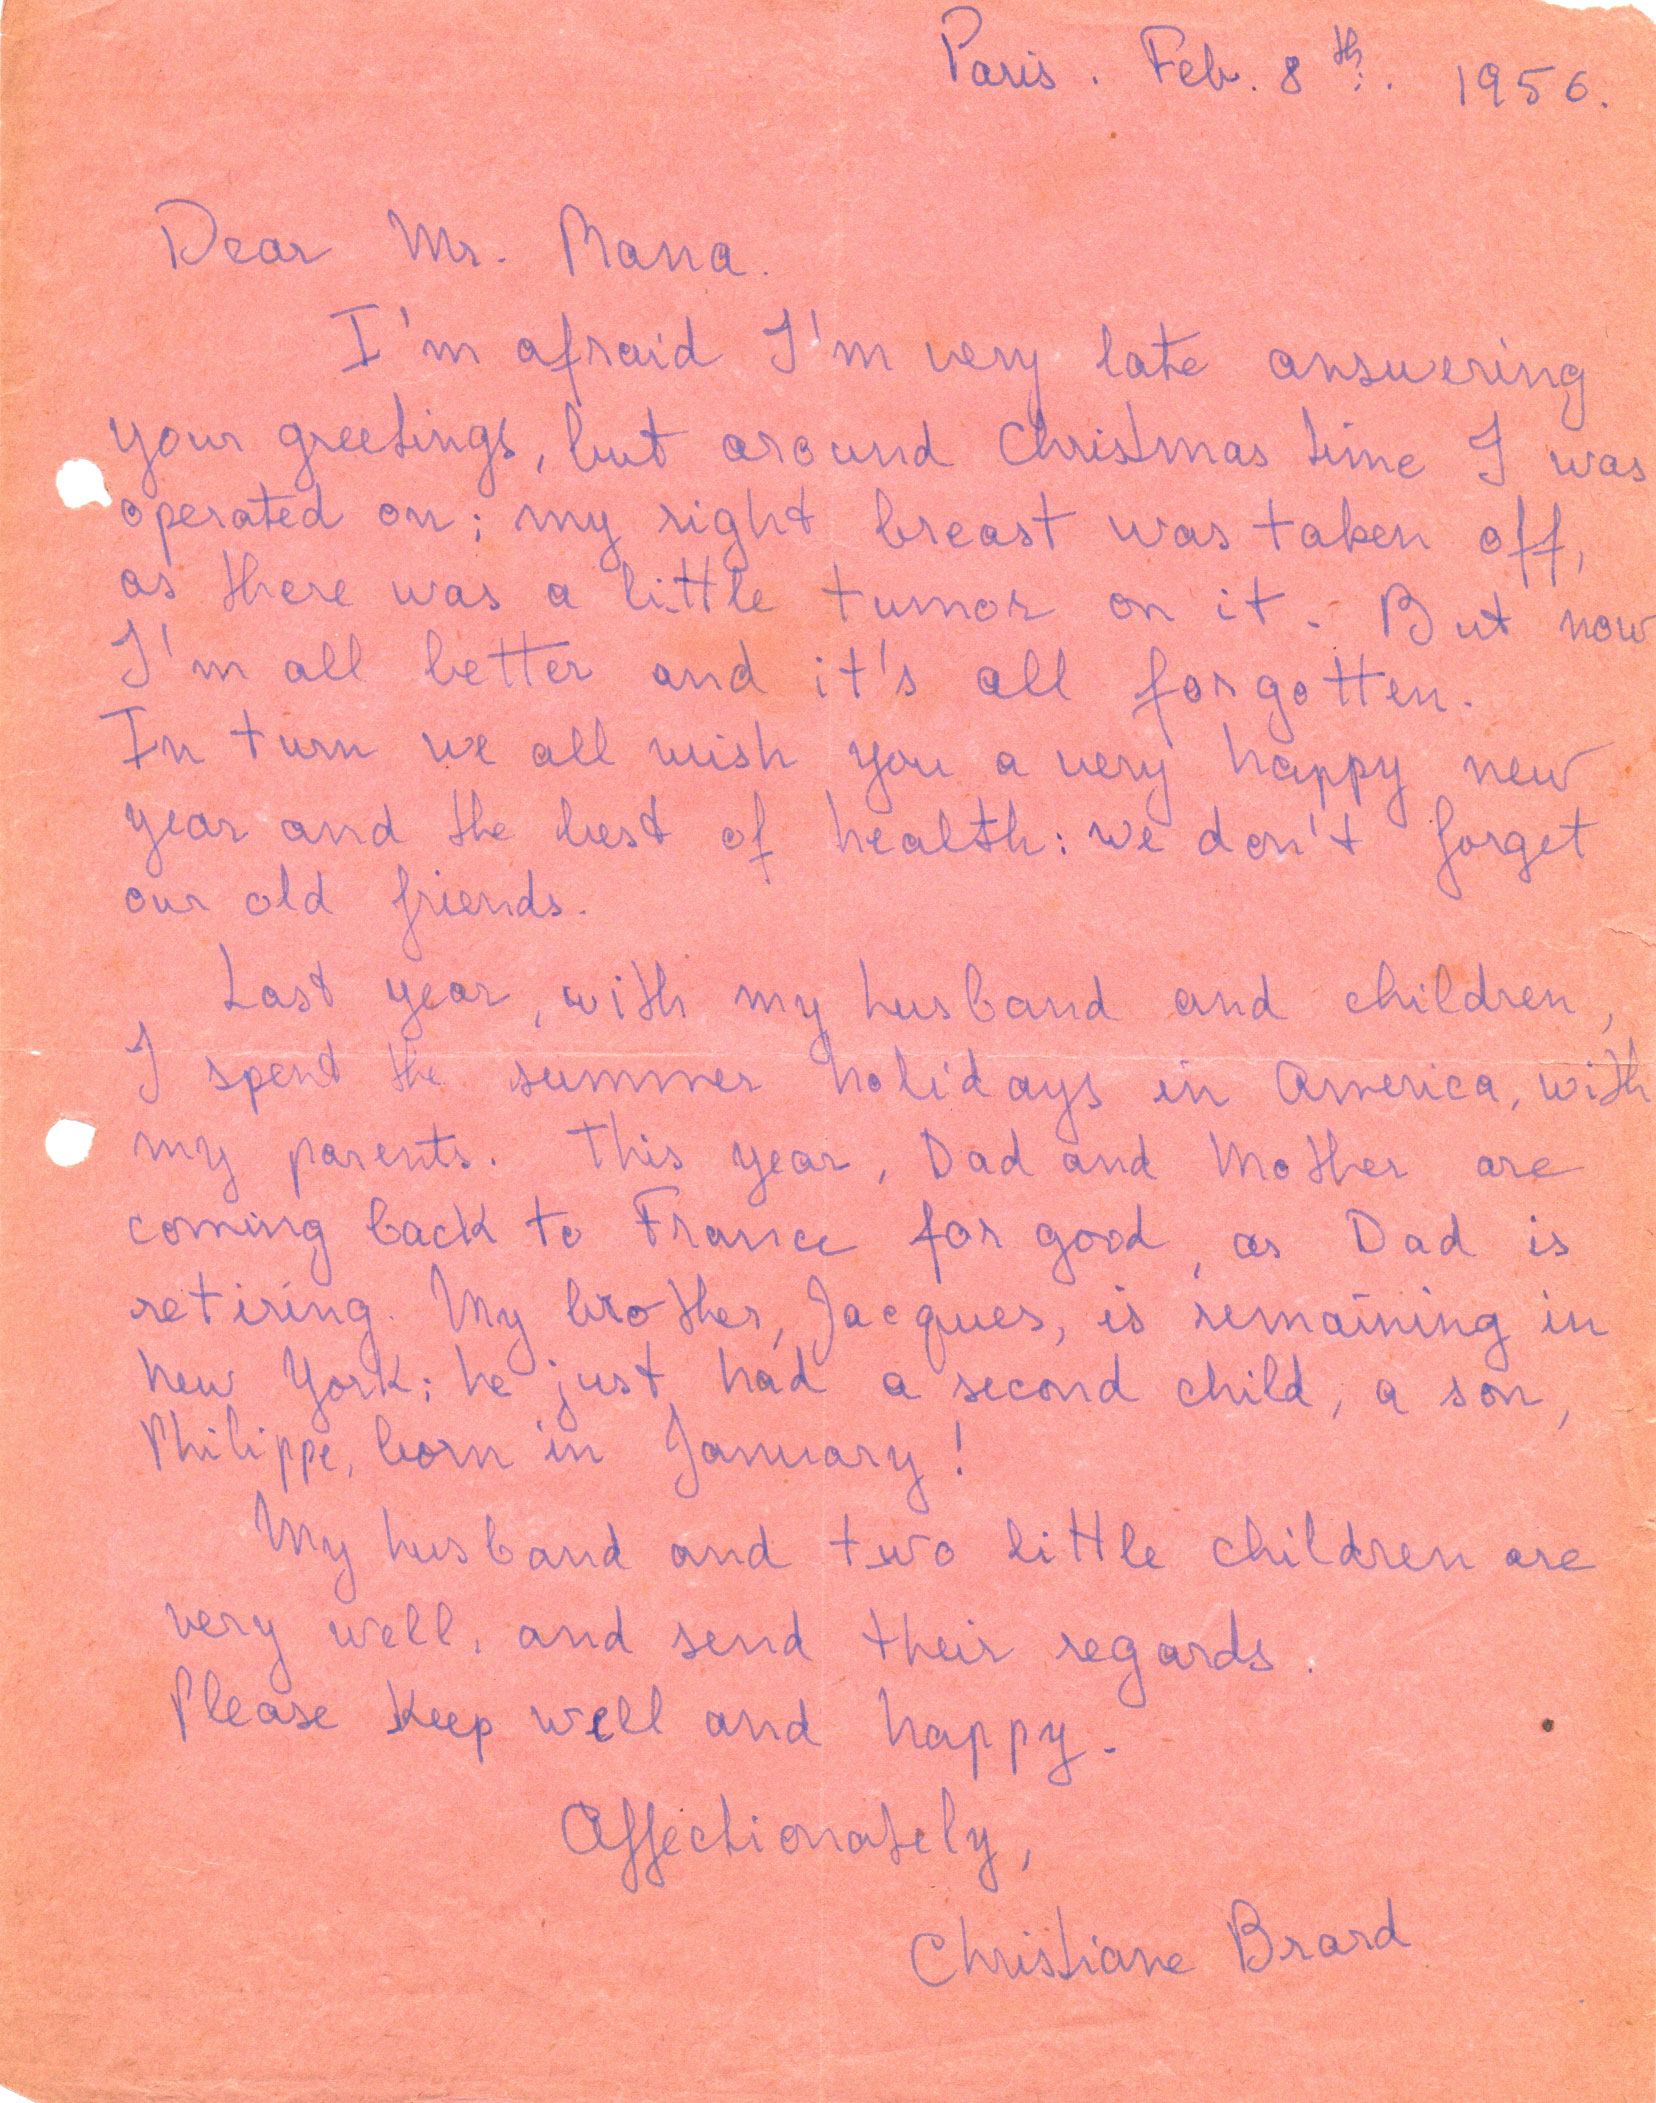 Paris. Feb. 8th. 1956.
Dear Mr. Mana.
I'm afraid I'm very late answering
your greetings, but around Christmas time I was
operated on; my right breast was taken off,
as there was a little tumor on it. But now
I'm all better and it's all forgotten.
In turn we all wish you a very happy new
year and the best of health: we don't forget
our old friends.
Last year, with my husband and children,
I spent the summer holidays in America, with
my parents. This year, Dad and Mother are
coming back to France for good, as Dad is
retiring. My brother, Jacques, is remaining in
New York; he just had a second child, a son,
Philippe, born in January!
My husband and two little children are
very well, and send their regards.
Please keep well and happy.
Affectionately,
Christiane Brard